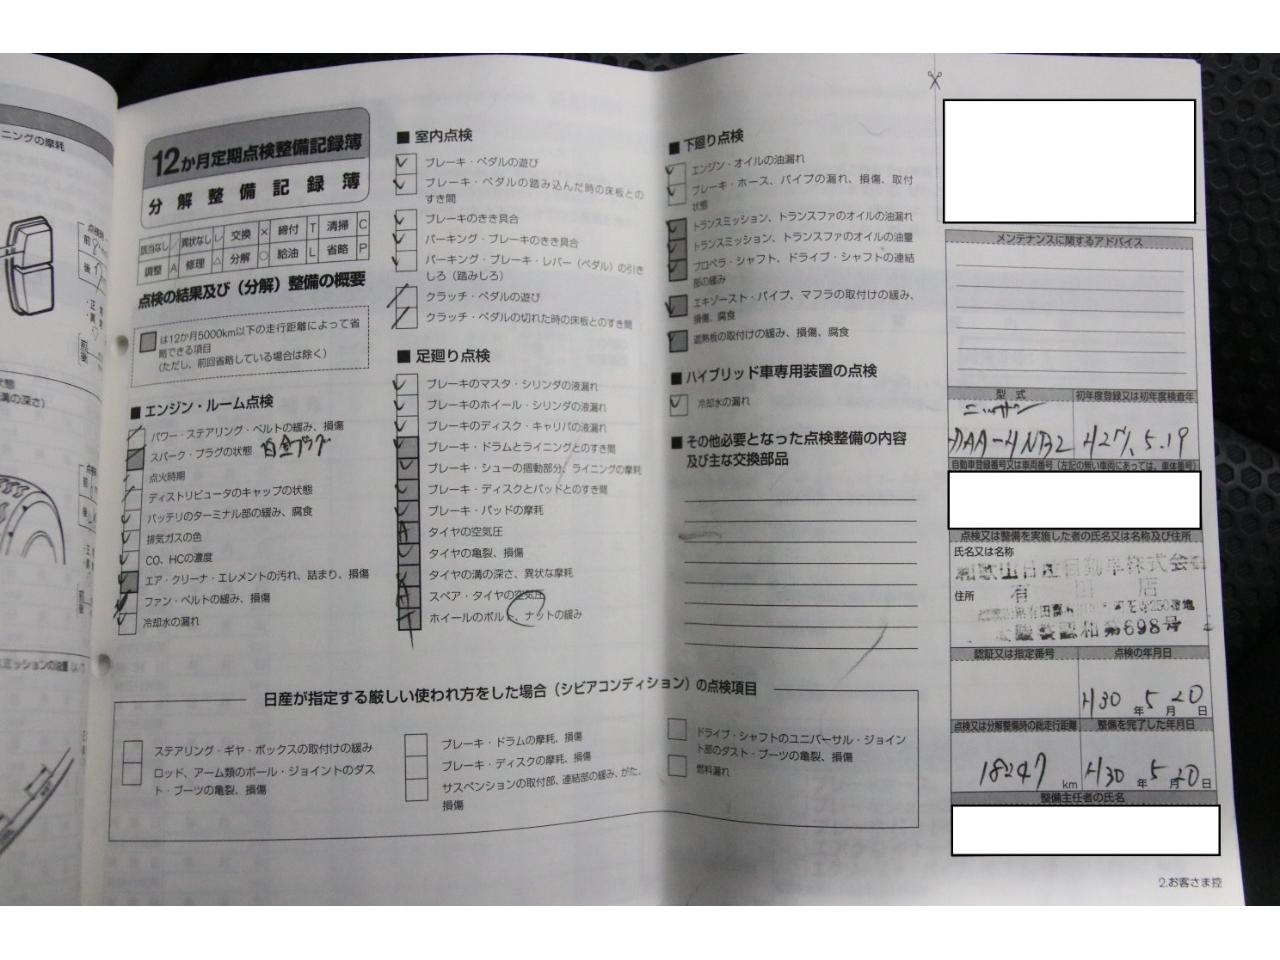 ニングの摩耗
12か月定期点検整備記録簿
分解整備記録簿
該当なし ／ 異状なし レ 交換 × 締付 T 清掃 C
調整 A 修理 △ 分解 ○ 給油 L 省略 P
点検の結果及び（分解）整備の概要
は12か月5000km以下の走行距離によって省
略できる項目
（ただし、前回省略している場合は除く）
■ エンジン・ルーム点検
パワー・ステアリング・ベルトの緩み、損傷
スパーク・プラグの状態 白金プラグ
点火時期
ディストリビュータのキャップの状態
バッテリのターミナル部の緩み、腐食
排気ガスの色
CO、HCの濃度
エア・クリーナ・エレメントの汚れ、詰まり、損傷
ファン・ベルトの緩み、損傷
冷却水の漏れ
■ 室内点検
ブレーキ・ペダルの遊び
ブレーキ・ペダルの踏み込んだ時の床板との
すき間
ブレーキのきき具合
パーキング・ブレーキのきき具合
パーキング・ブレーキ・レバー（ペダル）の引き
しろ（踏みしろ）
クラッチ・ペダルの遊び
クラッチ・ペダルの切れた時の床板とのすき間
■ 足廻り点検
ブレーキのマスタ・シリンダの液漏れ
ブレーキのホイール・シリンダの液漏れ
ブレーキのディスク・キャリパの液漏れ
ブレーキ・ドラムとライニングとのすき間
ブレーキ・シューの摺動部分、ライニングの摩耗
ブレーキ・ディスクとパッドとのすき間
ブレーキ・パッドの摩耗
タイヤの空気圧
タイヤの亀裂、損傷
タイヤの溝の深さ、異状な摩耗
スペア・タイヤの空気圧
ホイールのボルト、ナットの緩み
■ 下廻り点検
エンジン・オイルの油漏れ
ブレーキ・ホース、パイプの漏れ、損傷、取付
状態
トランスミッション、トランスファのオイルの油漏れ
トランスミッション、トランスファのオイルの油量
プロペラ・シャフト、ドライブ・シャフトの連結
部の緩み
エキゾースト・パイプ、マフラの取付けの緩み、
損傷、腐食
遮熱板の取付けの緩み、損傷、腐食
■ ハイブリッド車専用装置の点検
冷却水の漏れ
■ その他必要となった点検整備の内容
及び主な交換部品
日産が指定する厳しい使われ方をした場合（シビアコンディション）の点検項目
ステアリング・ギヤ・ボックスの取付けの緩み
ロッド、アーム類のボール・ジョイントのダス
ト・ブーツの亀裂、損傷
ブレーキ・ドラムの摩耗、損傷
ブレーキ・ディスクの摩耗、損傷
サスペンションの取付部、連結部の緩み、がた、
損傷
ドライブ・シャフトのユニバーサル・ジョイン
ト部のダスト・ブーツの亀裂、損傷
燃料漏れ
メンテナンスに関するアドバイス
型式 初年度登録又は初年度検査年
ニッサン
DAA-HNB27 H27.5.19
自動車登録番号又は車両番号（左記の無い車両にあっては、車体番号）
点検又は整備を実施した者の氏名又は名称及び住所
氏名又は名称
和歌山日産自動車株式会社
有田店
住所
認証又は指定番号 点検の年月日
H30 年 5 月 20 日
点検又は分解整備時の総走行距離 整備を完了した年月日
18247 km H30 年 5 月 20 日
整備主任者の氏名
2.お客さま控